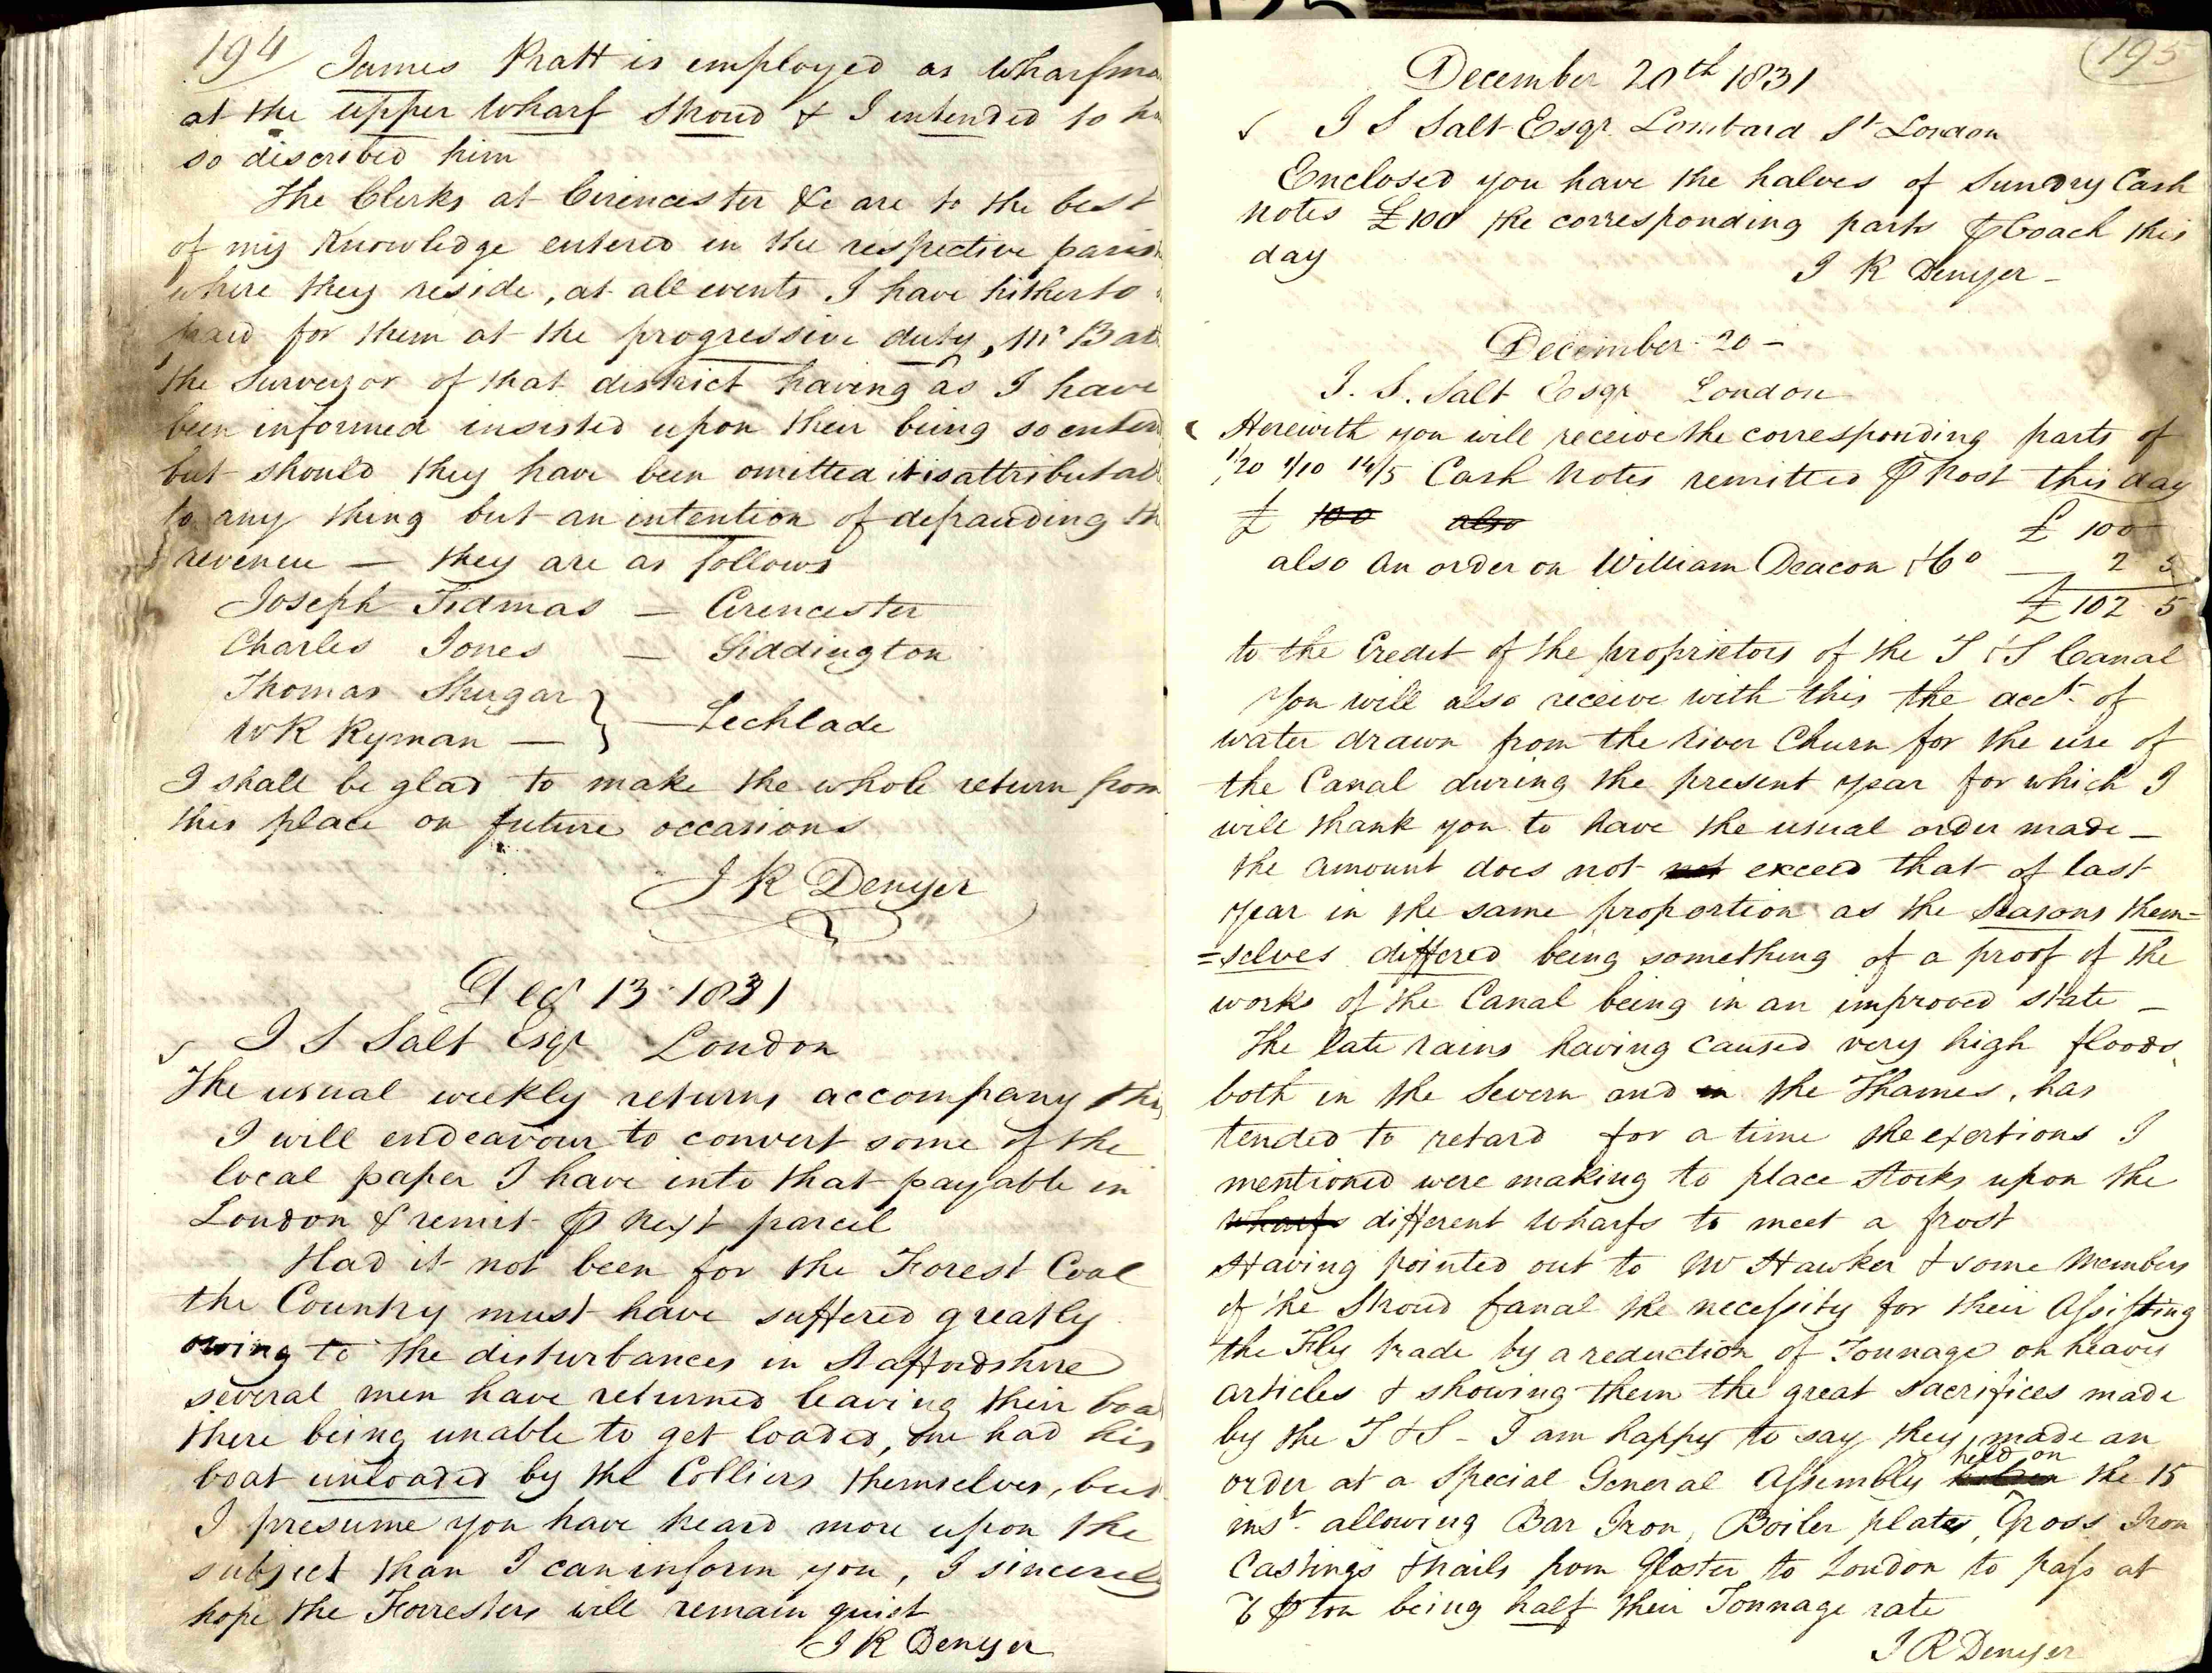 194
James Pratt is employed as Wharfma
at the upper Wharf Stroud & I intended to ha
so discribed him
The Clerks at Cirencester &c are to the best
of my Knowledge entered in the respective paris
where they reside, at all events I have hitherto
paid for them at the progressive duty, Mr Bat
the Surveyor of that district having as I have
been informed insisted upon their being so enter
but should they have been omitted it is attributab
to any thing but an intention of defrauding th
revenue — they are as follows
Joseph Tidmas — Cirencester
Charles Jones — Siddington
Thomas Shugar
WR Ryman — } — Lechlade
I shall be glad to make the whole return from
this place on future occasions
J R Denyer
Decr 13 1831
J S Salt Esqr London
The usual weekly returns accompany this
I will endeavour to convert some of the
local paper I have into that payable in
London & remit ⅌ next parcel
Had it not been for the Forest Coal
the Country must have suffered greatly
owing to the disturbances in Staffordshire
several men have returned leaving their boa
there being unable to get loaded, one had his
boat unloaded by the Colliers themselves, but
I presume you have heard more upon the
subject than I can inform you, I sincerely
hope the Forresters will remain quiet
J R Denyer
195
December 20th 1831
J S Salt Esqr Lombard St London
Enclosed you have the halves of Sundry Cash
notes £100 the corresponding parts ⅌ Coach this
day
J R Denyer —
December 20 —
J. S. Salt Esqr London
Herewith you will receive the corresponding parts of
1/20 1/10 14/5 Cash Notes remitted ⅌ Post this day
£ 100 also £ 100
also an order on William Deacon & Co — 2 5
£ 102 5
to the Credit of the proprietors of the T & S Canal
You will also receive with this the acct. of
water drawn from the River Churn for the use of
the Canal during the present year for which I
will thank you to have the usual order made —
the amount does not not exceed that of last
year in the same proportion as the seasons them=
=selves differed being something of a proof of the
works of the Canal being in an improved state —
The late rains having caused very high floods,
both in the Severn and in the Thames, has
tended to retard for a time the exertions I
mentioned were making to place stocks upon the
wharfs different wharfs to meet a frost
Having pointed out to Mr Hawker & some Members
of the Stroud Canal the necessity for their Assisting
the Fly trade by a reduction of Tonnage on heavy
articles & showing them the great sacrifices made
by the T & S — I am happy to say they made an
order at a Special General Assembly holden held on the 15
inst. allowing Bar Iron, Boiler plates, Gross Iron
Castings & nails from Gloster to London to pass at
⅌ ton being half their Tonnage rate
J R Denyer